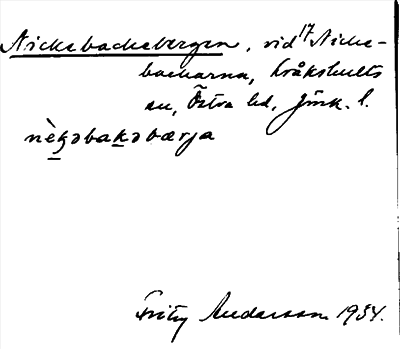 Nickebackebergen, vid 17 Nicke-
backarna, Kråkshults
sn, Östra hd, Jönk. l.
nèk̠əbak̠əbærja
Fritz Andersson 1934.